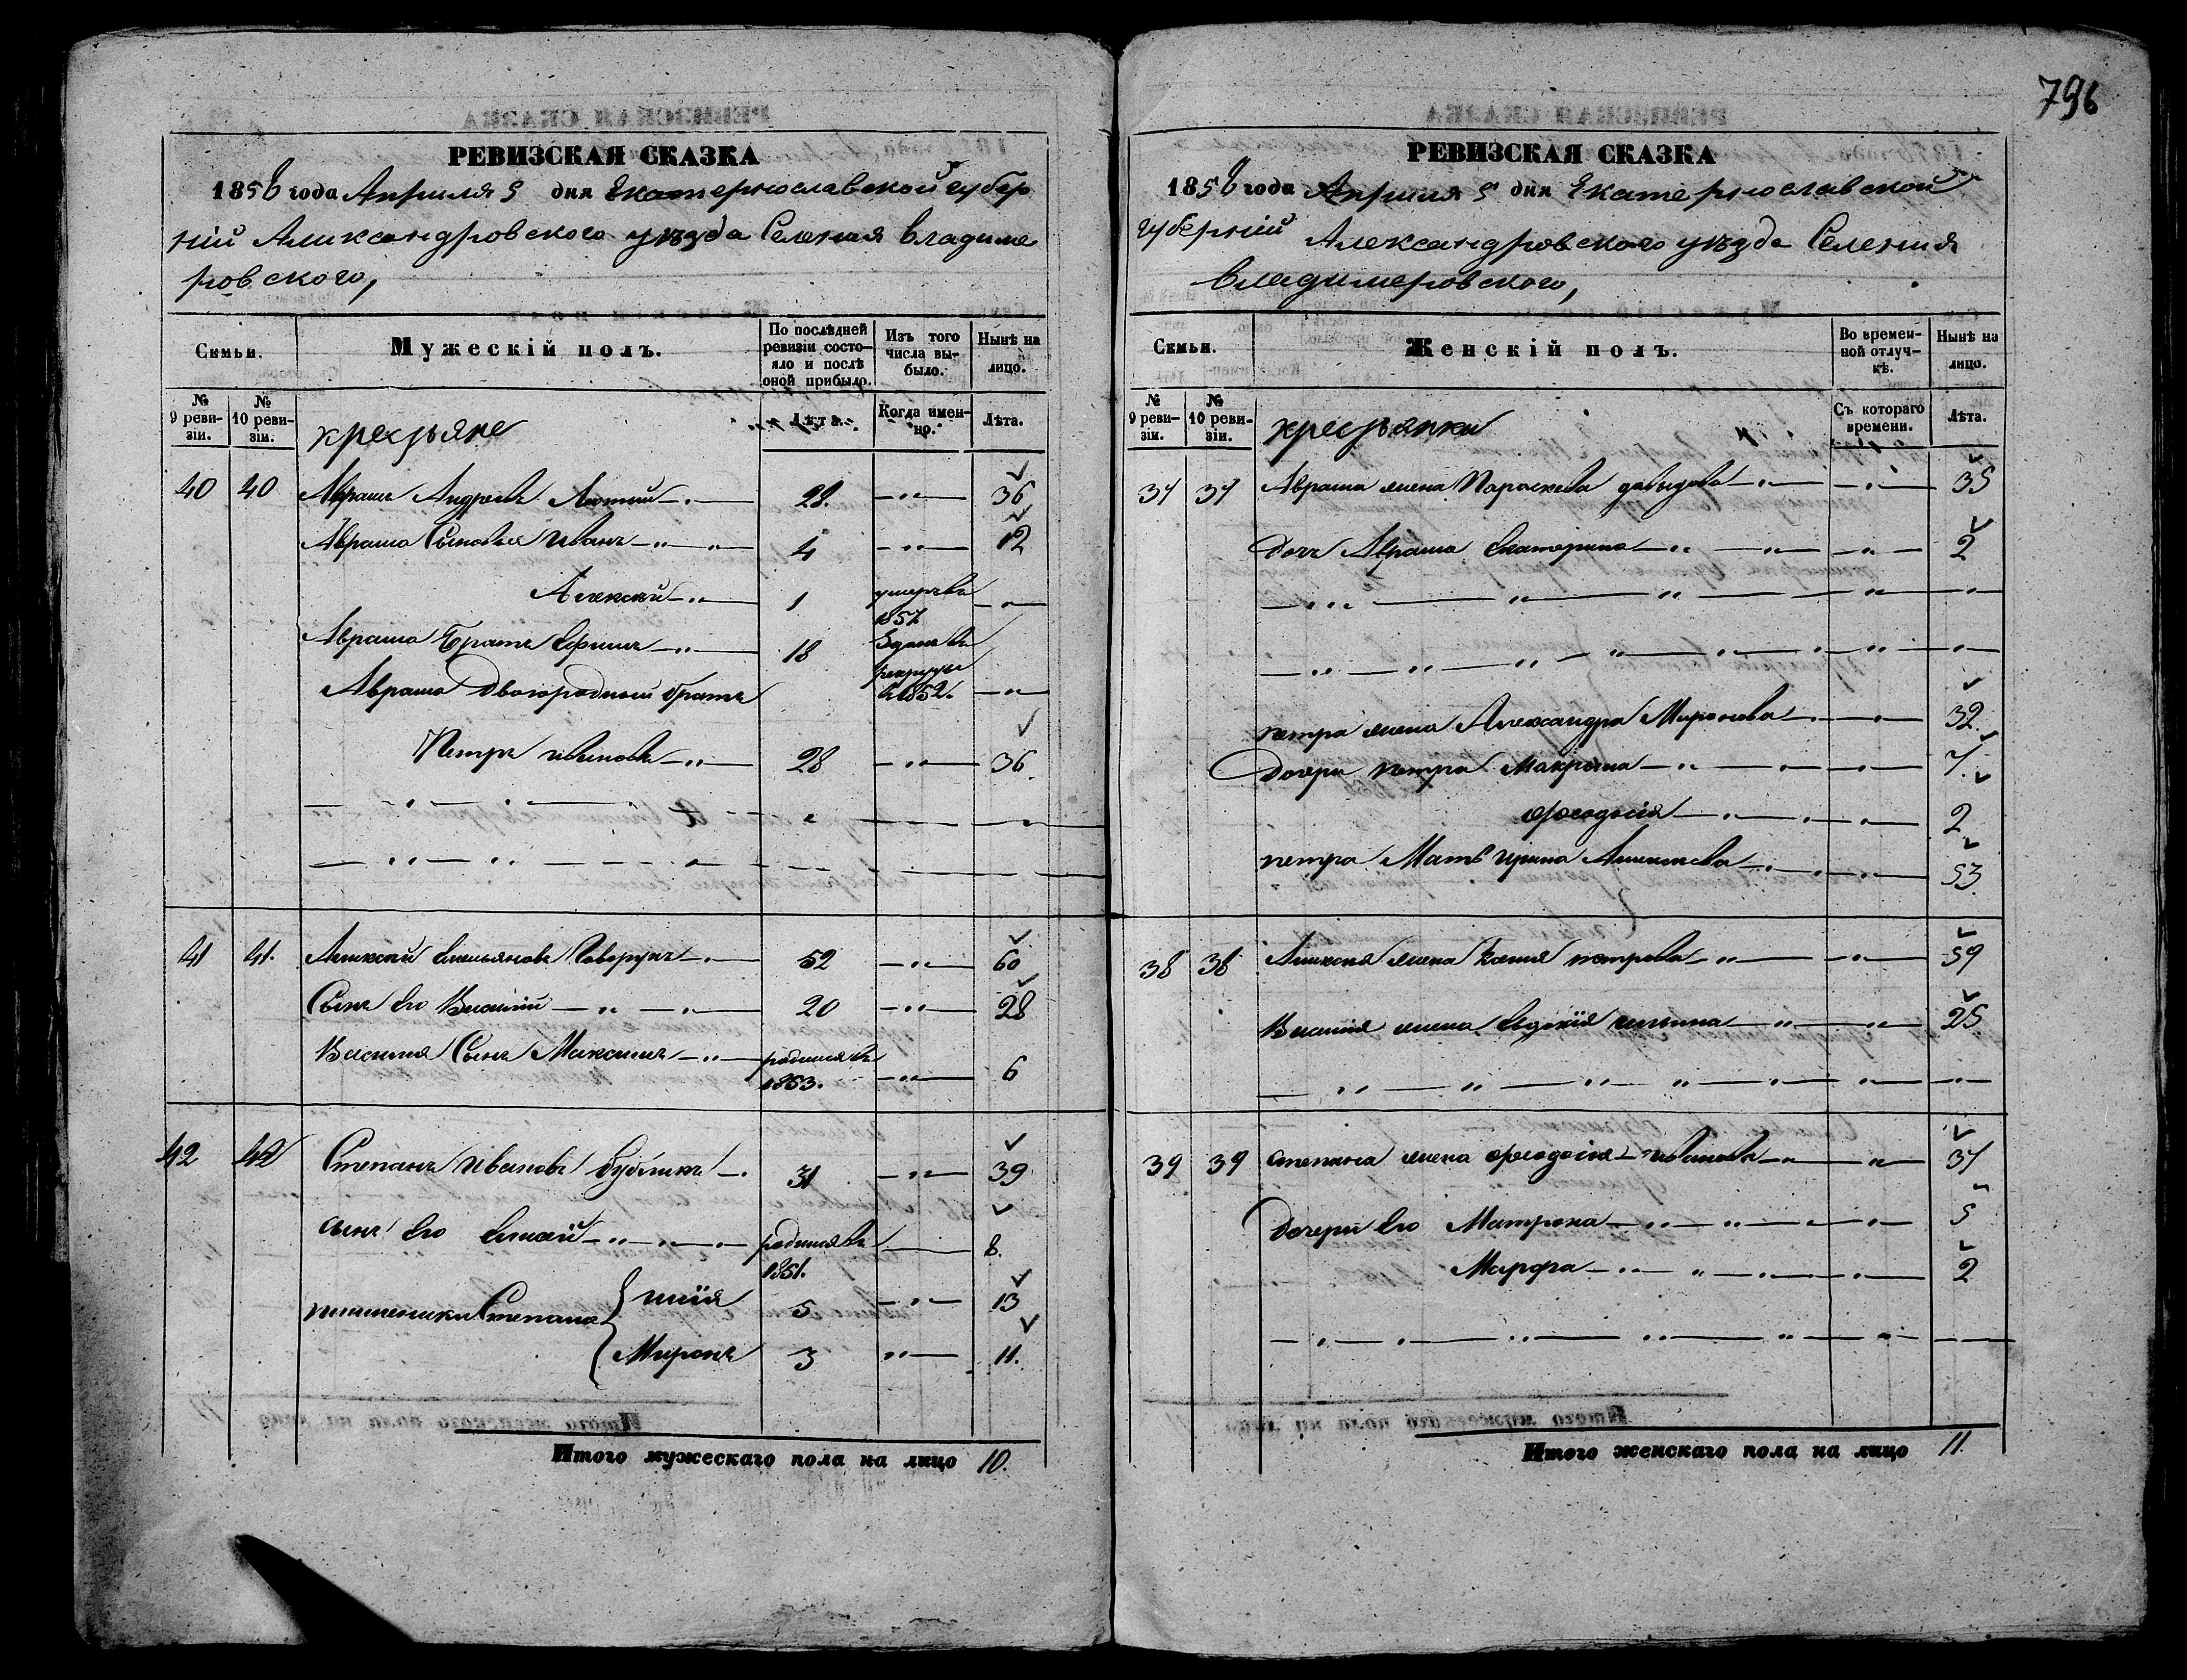 796
РЕВИЗСКАЯ СКАЗКА
1858 года Апреля 5 дня Екатеринославской губер
ніи Александровского уезда Селения Владиме
ровского,
Семьи.
Мужескій полъ.
По послѣдней ревизіи состояло и послѣ оной прибыло.
Изъ того числа выбыло.
Нынѣ на лицо.
№ 9 ревизіи.
№ 10 ревизіи.
крестьяне
Лѣта.
Когда именно.
Лѣта.
40 40 Абрамъ Андреевъ 28. —"— 36
Абрама Сыновья Иванъ —"— 4 —"— 12
Алексей —"— 1 умеръ въ 1857 —"—
Абрама братъ Ефимъ —"— 18 Зданъ въ рекруты в 1852. —"—
Абрама двоюродный братъ
Петръ Ивановъ —"— 28 —"— 36.
41 41. Алексей Емельяновъ —"— 52 —"— 60
Сынъ Его Василий —"— 20 —"— 28
Василия Сынъ Максимъ —"— родился въ 1853. —"— 6
42 42 Степанъ Ивановъ Бубликъ —"— 31 —"— 39
сынъ Его —"— родился въ 1851. — 8.
племенники Степана { Илія 5 —"— 13
Миронъ 3 "— 11.
Итого мужескаго пола на лицо 10.
РЕВИЗСКАЯ СКАЗКА
1858 года Апреля 5 дня Екатеринославской
губерніи Александровского уезда Селения
Владимеровского,
Семьи.
Женскій полъ.
Во временной отлучкѣ.
Нынѣ на лицо.
№ 9 ревизіи.
№ 10 ревизіи.
крестьянки
Съ котораго времени.
Лѣта.
37 37 Абрама жена Параскева Давыдова —"— 35
Дочь Абрама Екатерина —"— 2
петра жена Александра Миронова —"— 32
Дочери петра Макрина —"— 7.
Феодосія —"— 2
петра Мать Ирина —"— 53.
38 38 Алексея жена петрова —"— 59
Василия жена Евдокія Ильина —"— 25
39 39 степана жена Феодосія Иванова —"— 37
Дочери Его Матрена —"— 5
Марфа —"— 2
Итого женскаго пола на лицо 11.